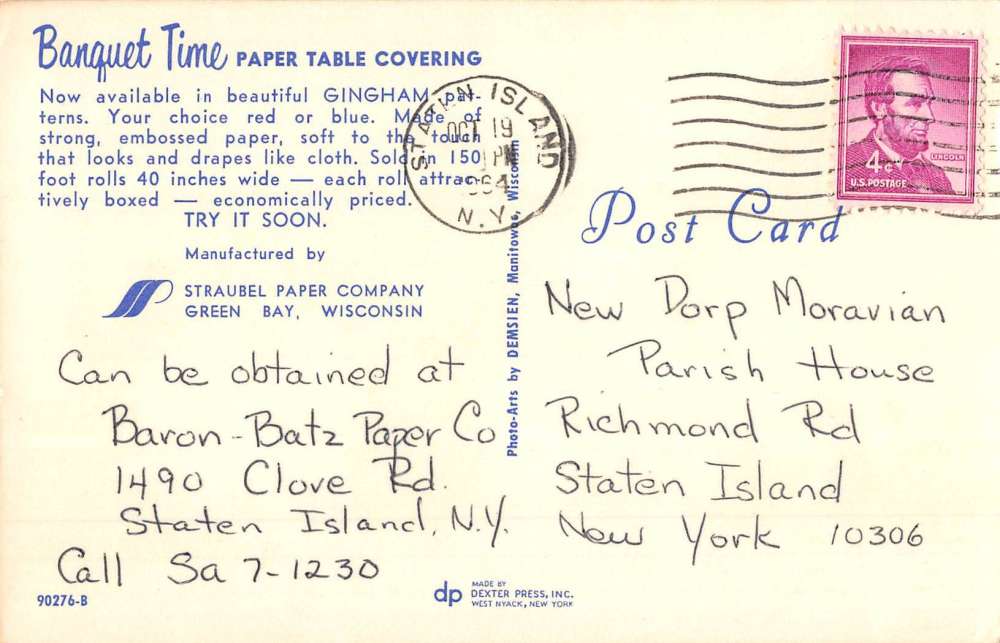 Banquet Time PAPER TABLE COVERING
Now available in beautiful GINGHAM pat-
terns. Your choice red or blue. Made of
strong, embossed paper, soft to the touch
that looks and drapes like cloth. Sold in 150
foot rolls 40 inches wide — each roll attrac-
tively boxed — economically priced.
TRY IT SOON.
Manufactured by
STRAUBEL PAPER COMPANY
GREEN BAY, WISCONSIN
Can be obtained at
Baron-Batz Paper Co
1490 Clove Rd.
Staten Island, N.Y.
Call Sa 7-1230
90276-B
STATEN ISLAND
OCT 19
PM
1964
N.Y.
Photo-Arts by DEMSIEN, Manitowoc, Wisconsin
dp
MADE BY
DEXTER PRESS, INC.
WEST NYACK, NEW YORK
LINCOLN
4¢
U.S. POSTAGE
Post Card
New Dorp Moravian
Parish House
Richmond Rd
Staten Island
New York 10306